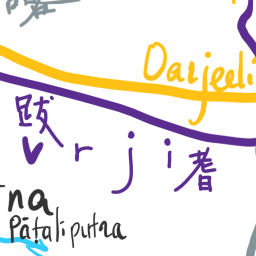 Darjeeli
跋
vrji耆
na
Pāṭaliputra